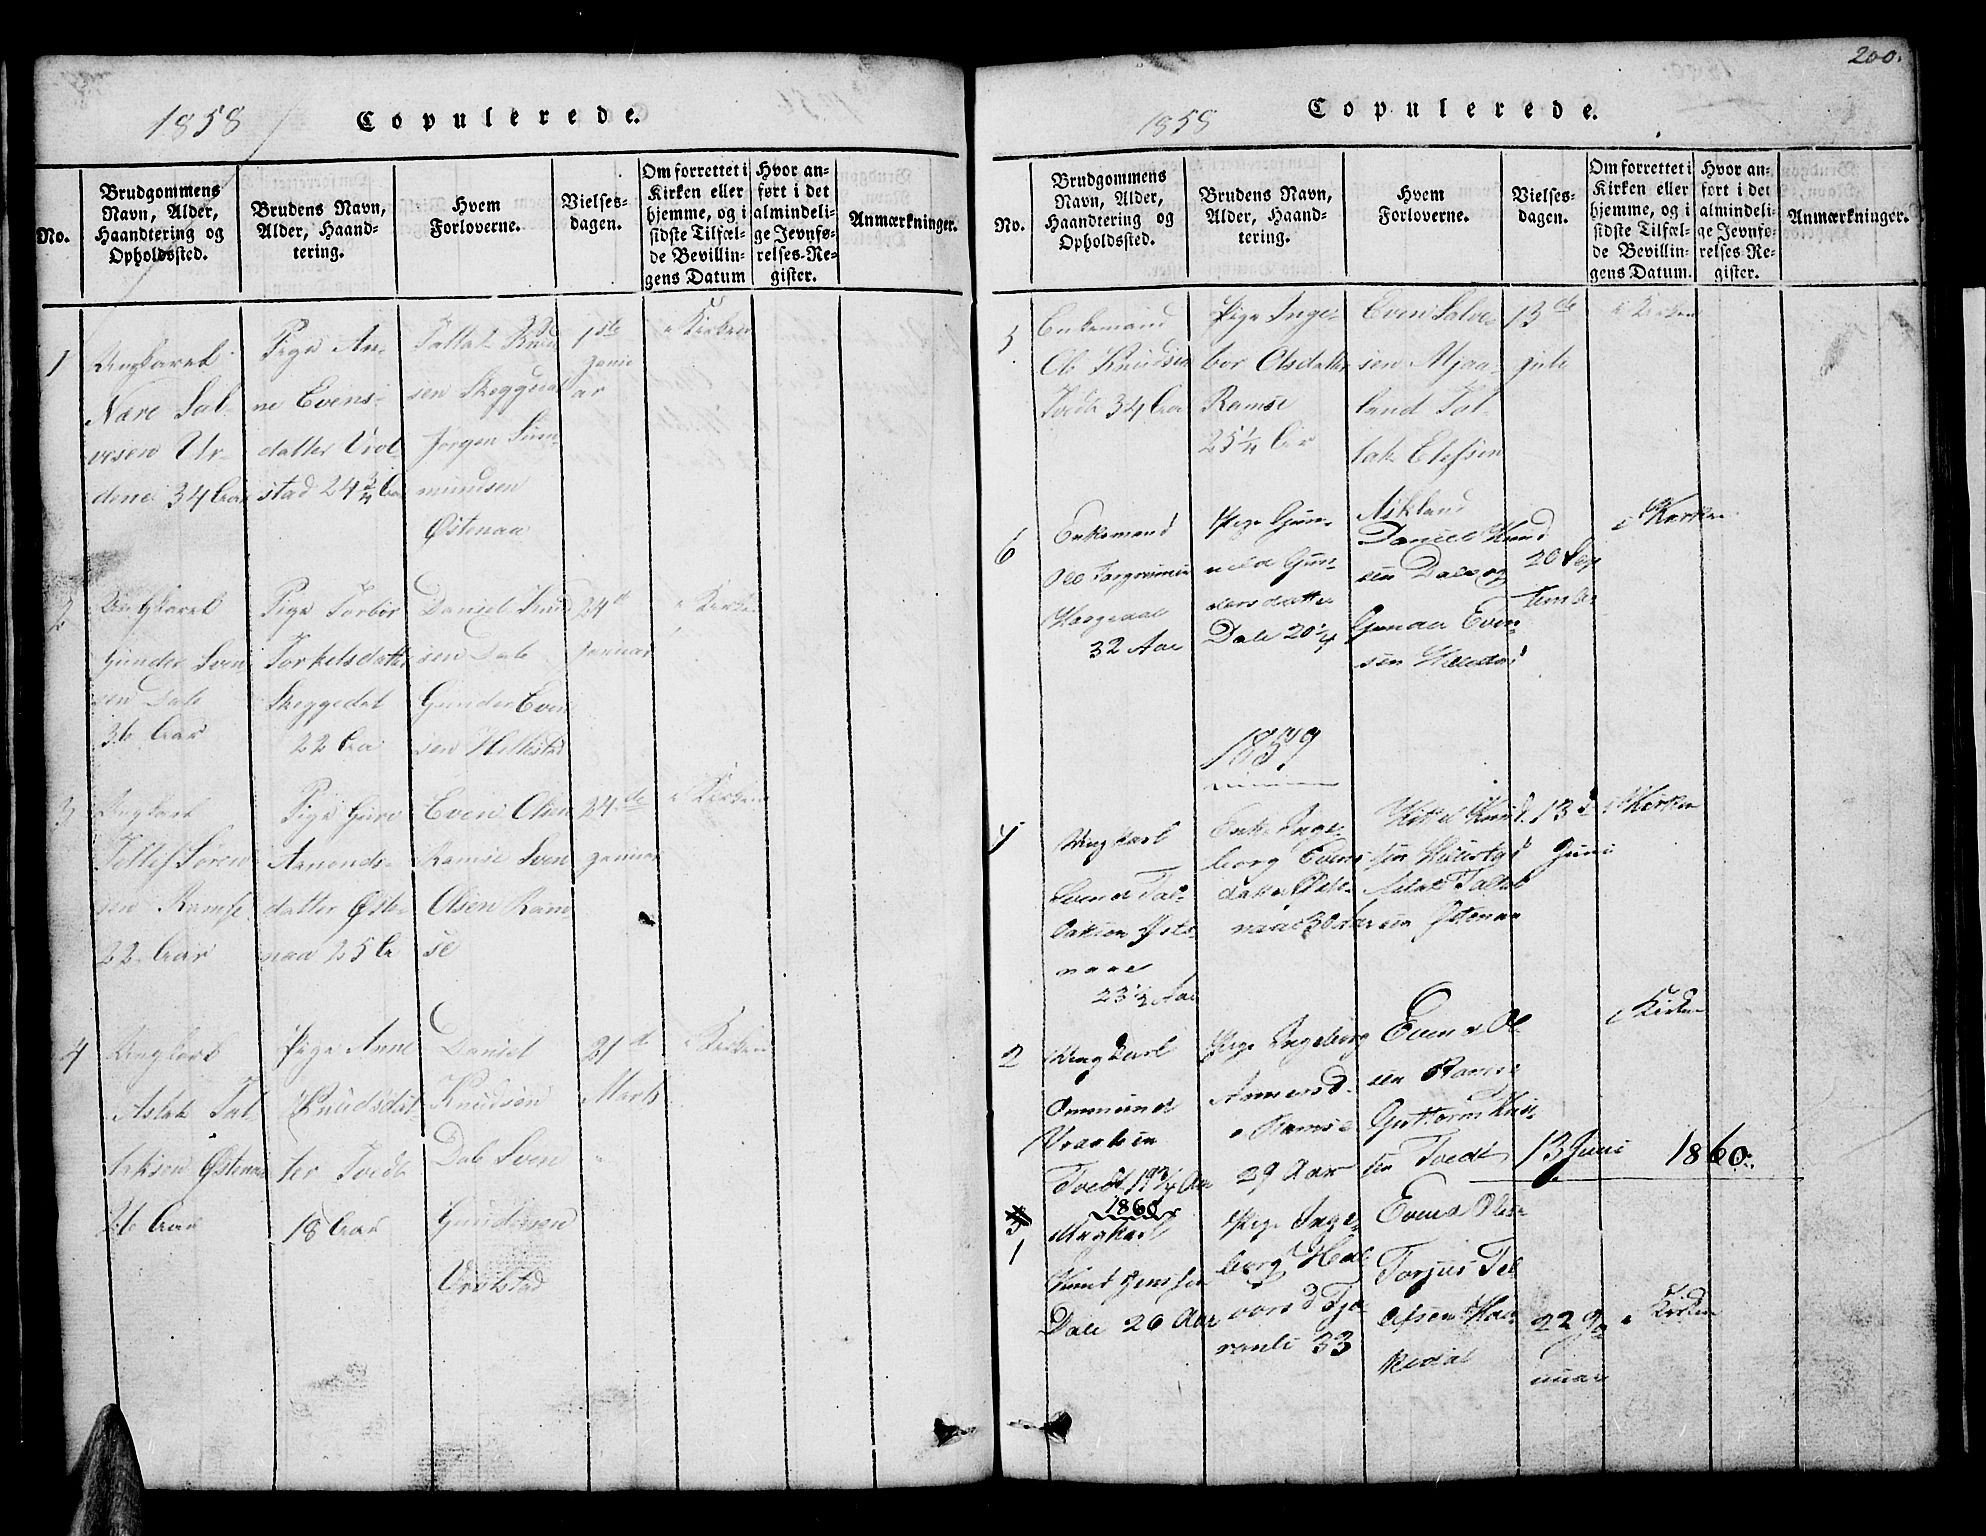 200.
1858
Copulerede.
No.
Brudgommens Navn, Alder, Haandtering og Opholdssted.
Brudens Navn, Alder, Haandtering.
Hvem Forloverne.
Vielsesdagen.
Om forrettet i Kirken eller hjemme, og i sidste Tilfælde Bevillingens Datum
Hvor anført i det almindelige Jevnførelses-Register.
Anmærkninger.
1
Ungkarl
Nare Sal-
vesen Ur-
dene 34 Aar
Pige An-
ne Evens-
datter Vrol-
stad 24 3/4 Aar
Tallak Knud
sen Skeggedal
Jørgen Sim-
mundsen
Østenaa
1ste
Janu
ar
i Kirken
2
Ungkarl
Gunder Sven
sen Dale
36 Aar
Pige Torbor
Torkelsdatter
Skeggedal
22 Aar
Daniel Knud
sen Dale
Gunder Even
sen Hellestad
24d
Januar
i Kirken
3
Ungkarl
Tellef Soren
sen Ramse
22 Aar
Pige Guro
Amonds-
datter Øste-
naa 25 Aar
Even Olsen
Ramse Sven
Olsen Ram-
se
24de
Januar
i Kirken
4
Ungkarl
Aslak Tal-
laksen Østenaa
26 Aar
Pige Anne
Knudsdat-
ter Tvedt
18 Aar
Daniel
Knudsen
Dale Sven
Gundersen
Vrolstad
21d
Marts
i Kirken
1858
Copulerede.
No.
Brudgommens Navn, Alder, Haandtering og Opholdssted.
Brudens Navn, Alder, Haandtering.
Hvem Forloverne.
Vielsesdagen.
Om forrettet i Kirken eller hjemme, og i sidste Tilfælde Bevillingens Datum.
Hvor anført i det almindelige Jevnførelses-Register.
Anmærkninger.
5
Enkemand
Ole Knudsen
Tvedt 34 Aar
Pige Inge-
bor Olsdatter
Ramse
25 1/4 Aar
Even Salve-
sen Mjaa-
land Tal-
lak Elefsen
Askland
13de
Jule
i Kirken
6
Enkemand
Ole Torgrimsen
32 Aar
Pige Gun-
nild Gun-
dersdatter
Dale 20 1/4
Daniel Knud
sen Dale og
Gunder Even-
sen
20 Sep
tember
i Kirken
1859
1
Ungkarl
Svend Tal-
laksen Øste-
naae
23 1/2 Aar
Enke Inge-
borg Evens
datter Øste-
naae 30 Aar
Ketel Knud
sen
Aslak Tallak
sen Østenaa
13d
Juni
i Kirken
2
Ungkarl
Ommund
Vraalsen
Tvedt 19 3/4 Aar
Pige Ingeborg
Ammersd.
Ramse
29 Aar
Even Ol
sen Ramse
Guttorm Knu-
sen Tvedt
13 Juni
i Kirken
1860.
1860
3
1
Ungkarl
Knut Jenssen
Dale 26 Aar
Pige Inge-
borg Hal
vors d Tjø-
ranli 33
Even Olsen
Torjus Tel
lefsen
22 Ja
nuar
i Kirken